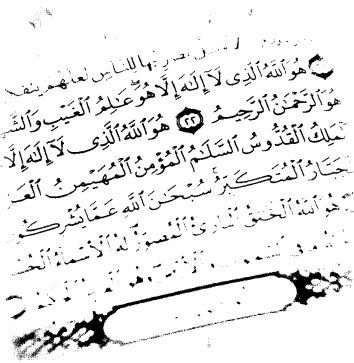 نضربها للناس لعلهم يتفكـ
هُوَ ٱللَّهُ ٱلَّذِى لَآ إِلَٰهَ إِلَّا هُوَ عَٰلِمُ ٱلْغَيْبِ وَٱلشَّـ
هُوَ ٱلرَّحْمَٰنُ ٱلرَّحِيمُ ٢٢ هُوَ ٱللَّهُ ٱلَّذِى لَآ إِلَٰهَ إِلَّا
ٱلْمَلِكُ ٱلْقُدُّوسُ ٱلسَّلَٰمُ ٱلْمُؤْمِنُ ٱلْمُهَيْمِنُ ٱلْعَـ
ـجَبَّارُ ٱلْمُتَكَبِّرُ سُبْحَٰنَ ٱللَّهِ عَمَّا يُشْرِكُو
هُوَ ٱللَّهُ ٱلْخَٰلِقُ ٱلْبَارِئُ ٱلْمُصَوِّرُ لَهُ ٱلْأَسْمَآءُ ٱلْحُسْـ
وَٱلْأَرْضِ وَهُوَ ٱلْعَزِيزُ ٱلْحَكِيمُ